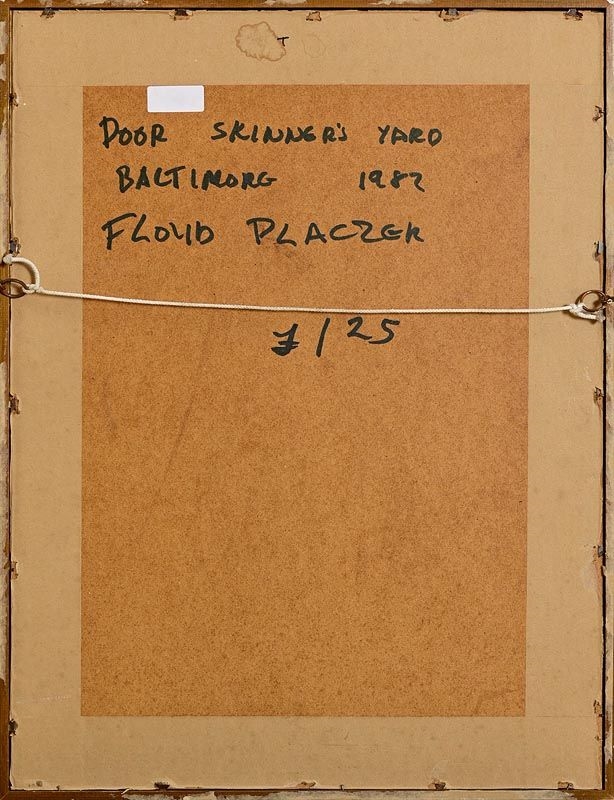 DOOR SKINNER'S YARD
BALTIMORE 1982
FLOYD PLACZEK
1/25